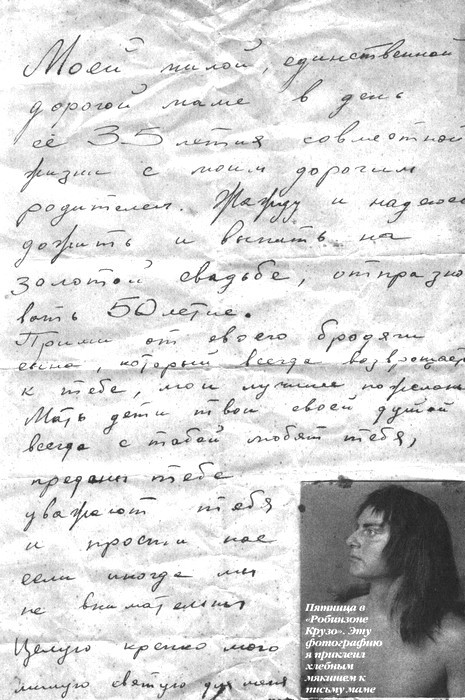 Моей милой, единственной
дорогой маме в день
её 35 летия совместной
жизни с моим дорогим
родителем. Жажду и надеюсь
дожить и выпить на
золотой свадьбе, отпраздно
вать 50 летие.
Прими от своего бродяги
сына, который всегда возвращает
к тебе, мои лучшие пожелан
Мать дети твои своей душой
всегда с тобой любят тебя,
преданы тебе
уважают тебя
и прости нас
если иногда мы
не внимательны
Целую крепко мою
милую святую для меня
Пятница в
«Робинзоне
Крузо». Эту
фотографию
я приклеил
хлебным
мякишем к
письму маме